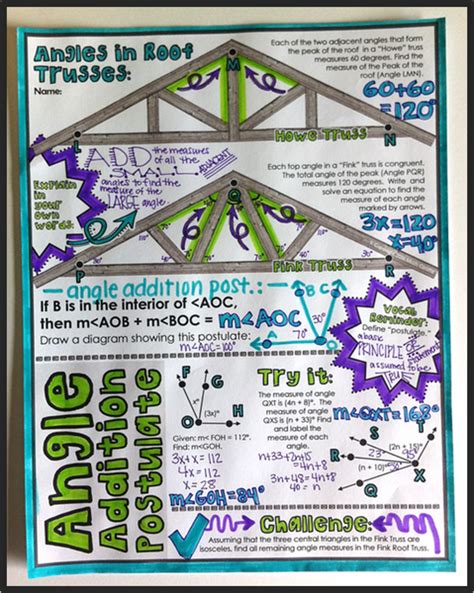 Angles in Roof
Trusses:
Name:
Each of the two adjacent angles that form
the peak of the roof in a "Howe" truss
measures 60 degrees. Find the
measure of the Peak of the
roof (Angle LMN).
60+60
=120°
M
L
Howe Truss
N
ADD the measures
of all the
SMALL ADJACENT
angles to find the
measure of the
LARGE angle
Explain
in
your
own
words:
Each top angle in a "Fink" truss is congruent.
The total angle of the peak (Angle PQR)
measures 120 degrees. Write and
solve an equation to find the
measure of each angle
marked by arrows.
3x=120
x=40°
Q
P
Fink Truss
R
angle addition post.:
If B is in the interior of <AOC,
then m<AOB + m<BOC = m<AOC
Draw a diagram showing this postulate:
m<AOC=100°
B
C
A
70°
30°
O
Vocab
Reminder:
Define "Postulate."
a basic
PRINCIPLE or
statement
assumed to be
TRUE
Angle
Addition
Postulate
F
G
x°
(3x)°
O
H
Given: m< FOH = 112°.
Find: m<GOH.
3x+x=112
4x=112
x=28
m<GOH=84°
Try it:
The measure of angle
QXT is (4n + 8)°. The
measure of angle
QXS is (n + 33)° Find
and label the
measure of each
angle.
n+33+2n+15
=4n+8
3n+48=4n+8
40=n
m<QXT=168°
T
S
(2n + 15)°
95°
R
23°
(n + 10)°
X
Q
Challenge:
Assuming that the three central triangles in the Fink Truss are
isosceles, find all remaining angle measures in the Fink Roof Truss.